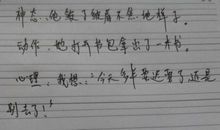 神态：他皱了皱眉不然地样子。
动作：她打开书包拿出了一本书。
心理：我想：“今天多半要迟到了还是
别去了！”